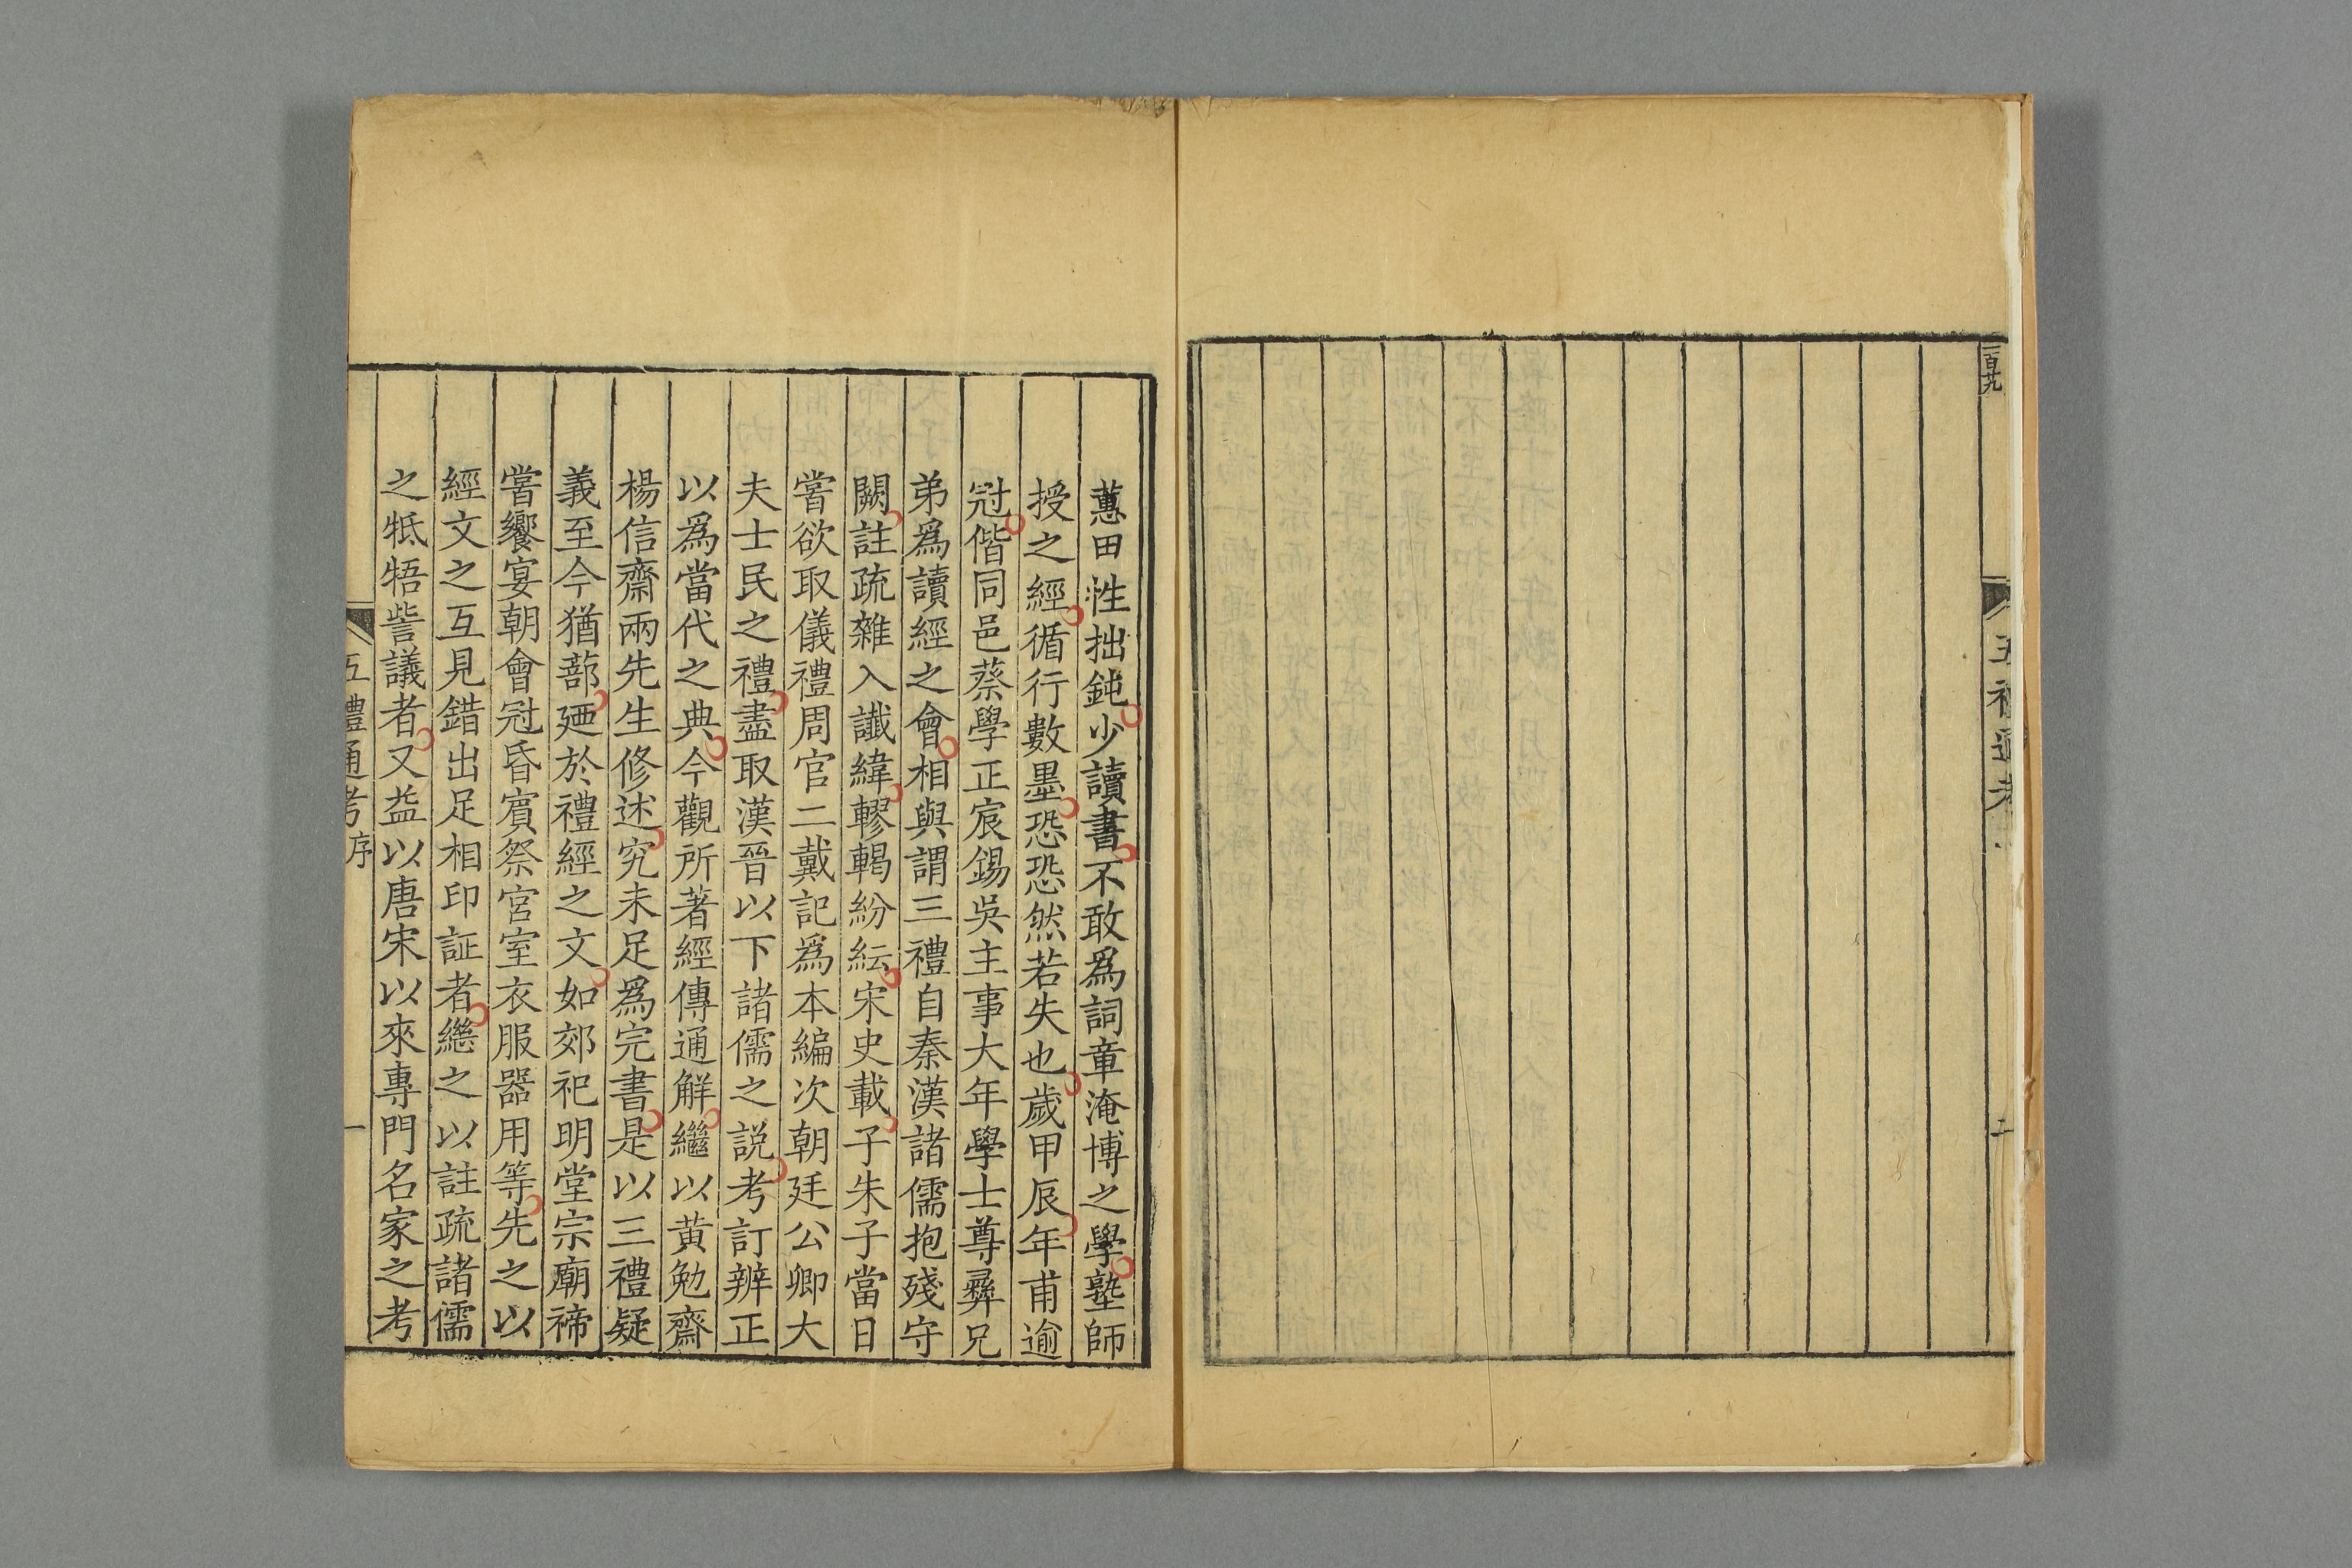 一百廿九
五禮通考
二
蕙田性拙鈍少讀書不敢爲詞章淹博之學塾師
授之經循行數墨恐恐然若失也歲甲辰年甫逾
冠偕同邑蔡學正宸錫吳主事大年學士尊彝兄
弟爲讀經之會相與謂三禮自秦漢諸儒抱殘守
闕註疏雜入讖緯轇輵紛紜宋史載子朱子當日
嘗欲取儀禮周官二戴記爲本編次朝廷公卿大
夫士民之禮盡取漢晉以下諸儒之説考訂辨正
以爲當代之典今觀所著經傳通解繼以黄勉齋
楊信齋兩先生修述究未足爲完書是以三禮疑
義至今猶蔀廼於禮經之文如郊祀明堂宗廟禘
嘗饗宴朝會冠昏賓祭宮室衣服器用等先之以
經文之互見錯出足相印証者繼之以註疏諸儒
之牴牾訾議者又益以唐宋以來專門名家之考
五禮通考序
一